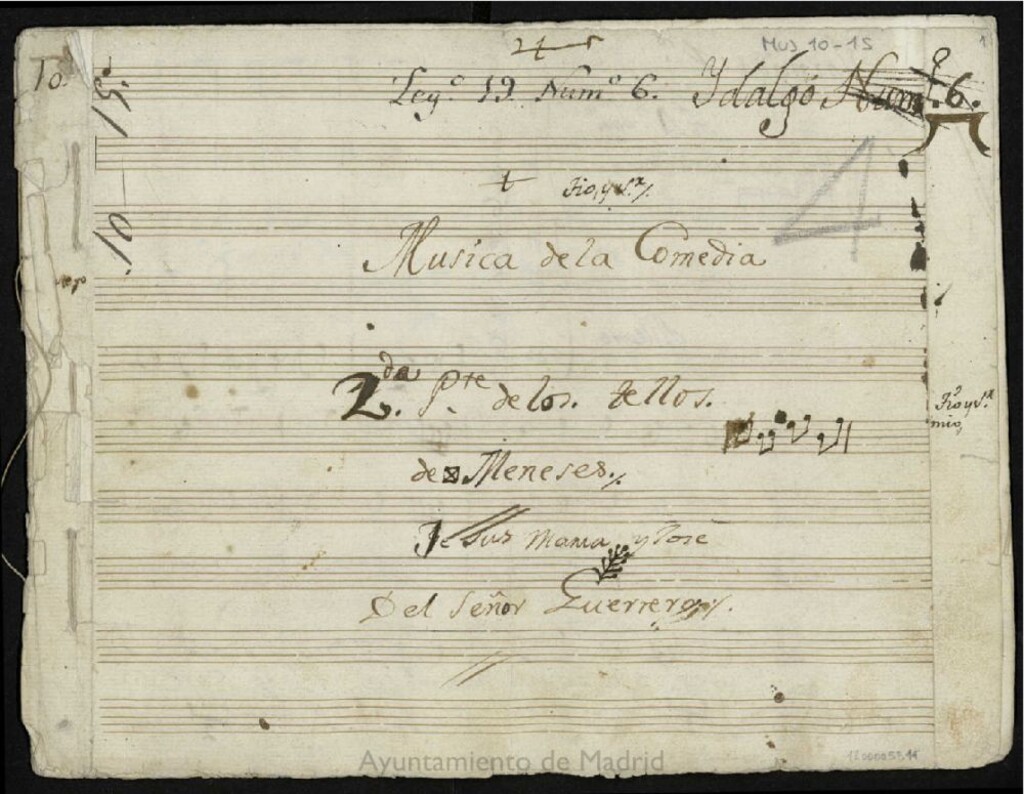 Mus 10-15
Leg.º 19. Num.º 6. Ydalgo Num. 6.
15.
10
Musica de la Comedia
2.da P.te de los. tellos.
de Meneses.
Jesus Maria y Jose
Del Señor Guerrero
Ayuntamiento de Madrid